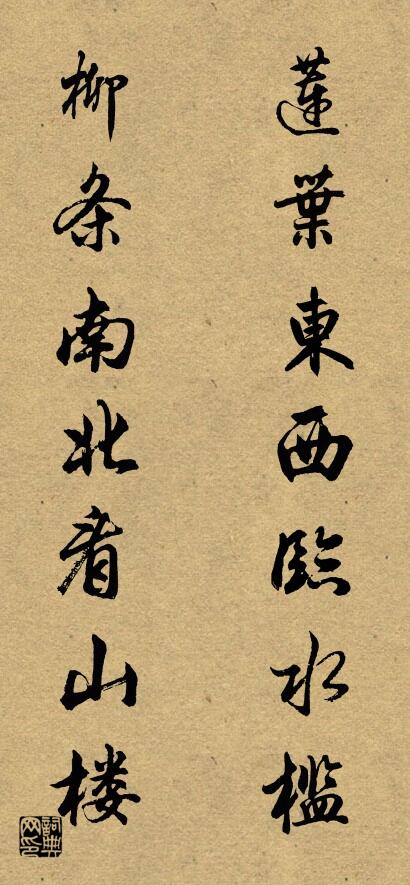 蓮葉東西臨水檻
柳条南北看山楼
詞典網印